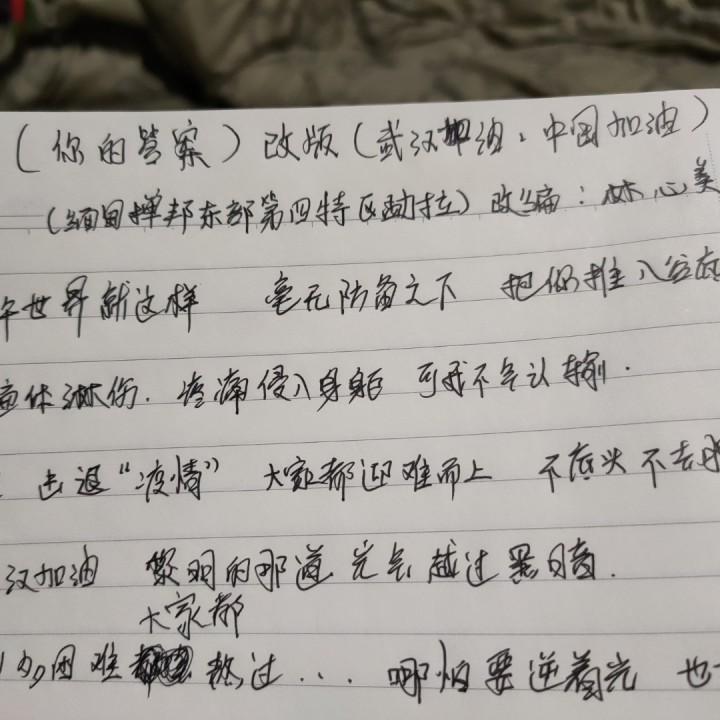 (你的答案)改版(武汉加油,中国加油)
(缅甸掸邦东部第四特区勐拉)改编:林心美
世界就这样 毫无防备之下 把你推入
体淋伤.疼痛侵入身躯 可我不会认输.
击退“疫情” 大家都迎难而上 不底头 不去
汉加油 黎明的那道光会越过黑暗.
大家都
困难 熬过... 哪怕要逆着光 也